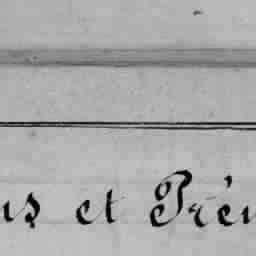 ms et Prén